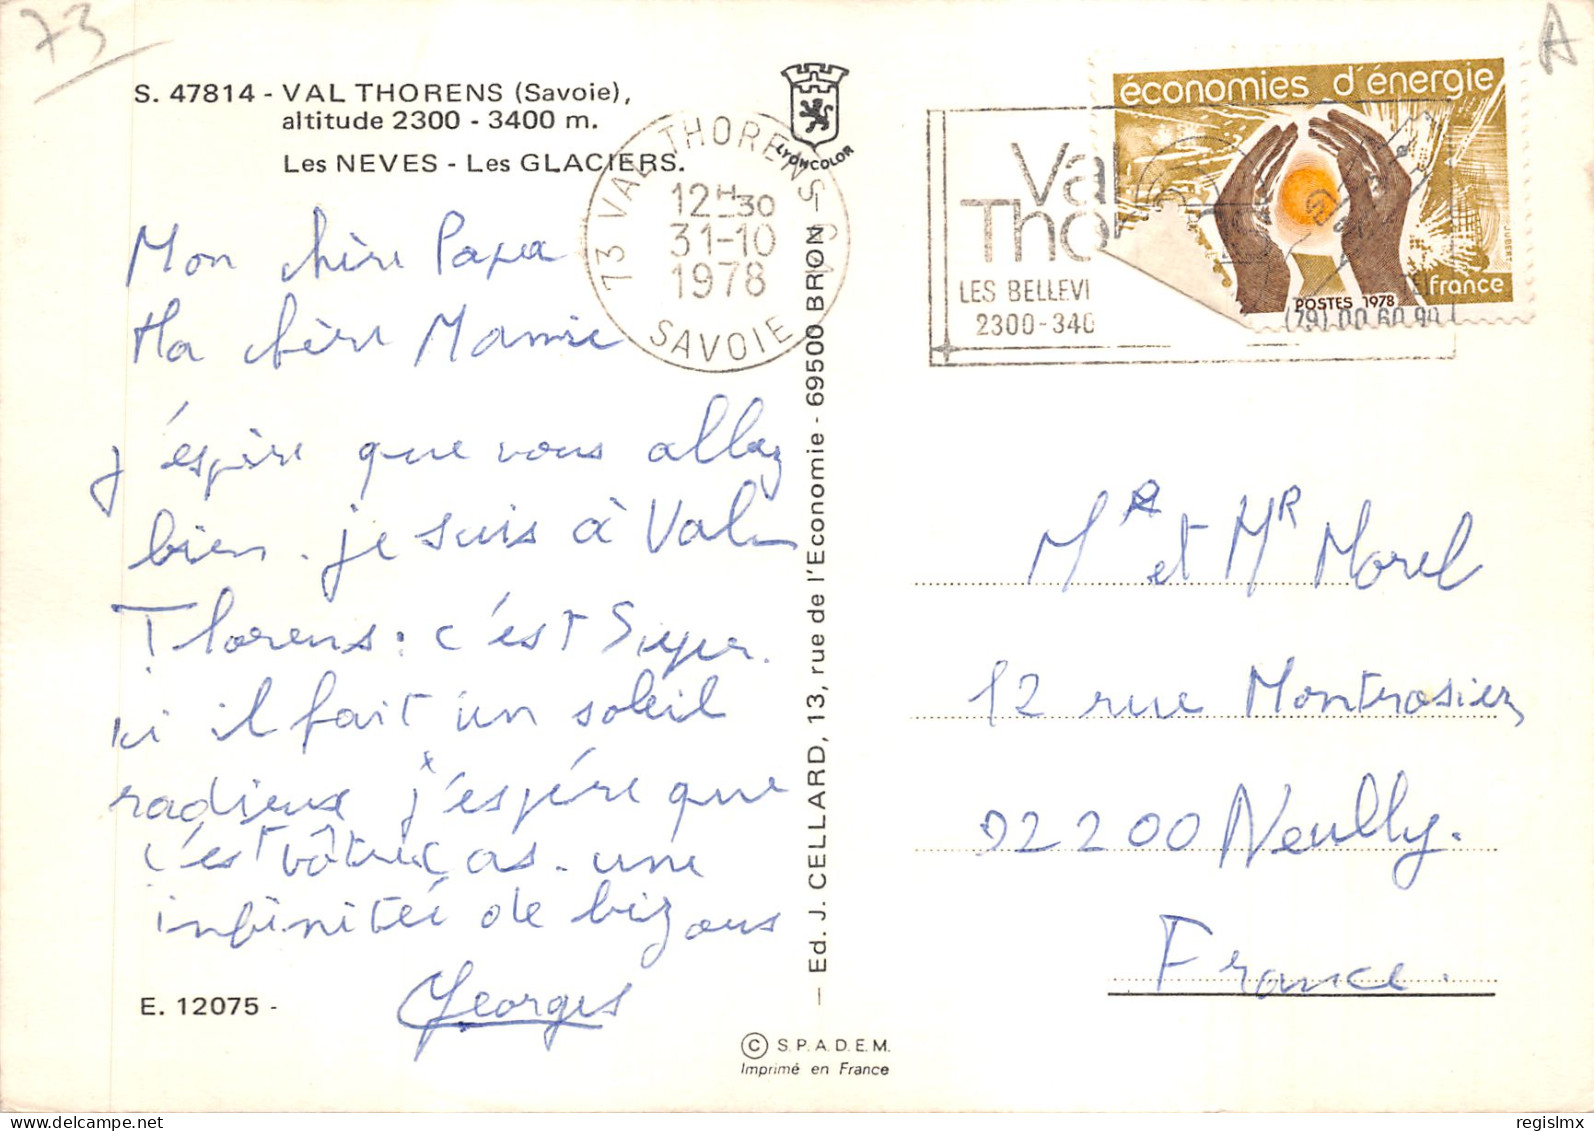 73
A
S. 47814 - VAL THORENS (Savoie),
altitude 2300 - 3400 m.
Les NEVES - Les GLACIERS.
LYONCOLOR
73 VAL THORENS
12H30
31-10
1978
SAVOIE
Val
Tho
LES BELLEVI
2300-340
(79) 00.60.90
économies d'énergie
POSTES 1978
france
Mon chère Papa
Ma chère Mamie
j'éspère que vous allez
bien. je suis à Val
Thorens: c'est Super.
ici il fait un soleil
radieux j'espére que
c'est vôtre cas. une
infinitée de bizous
Georges
E. 12075 -
— Ed. J. CELLARD, 13, rue de l'Economie - 69500 BRON —
© S.P.A.D.E.M.
Imprimé en France
MR et MR Morel
12 rue Montrosier
92200 Neully.
France.
regislmx